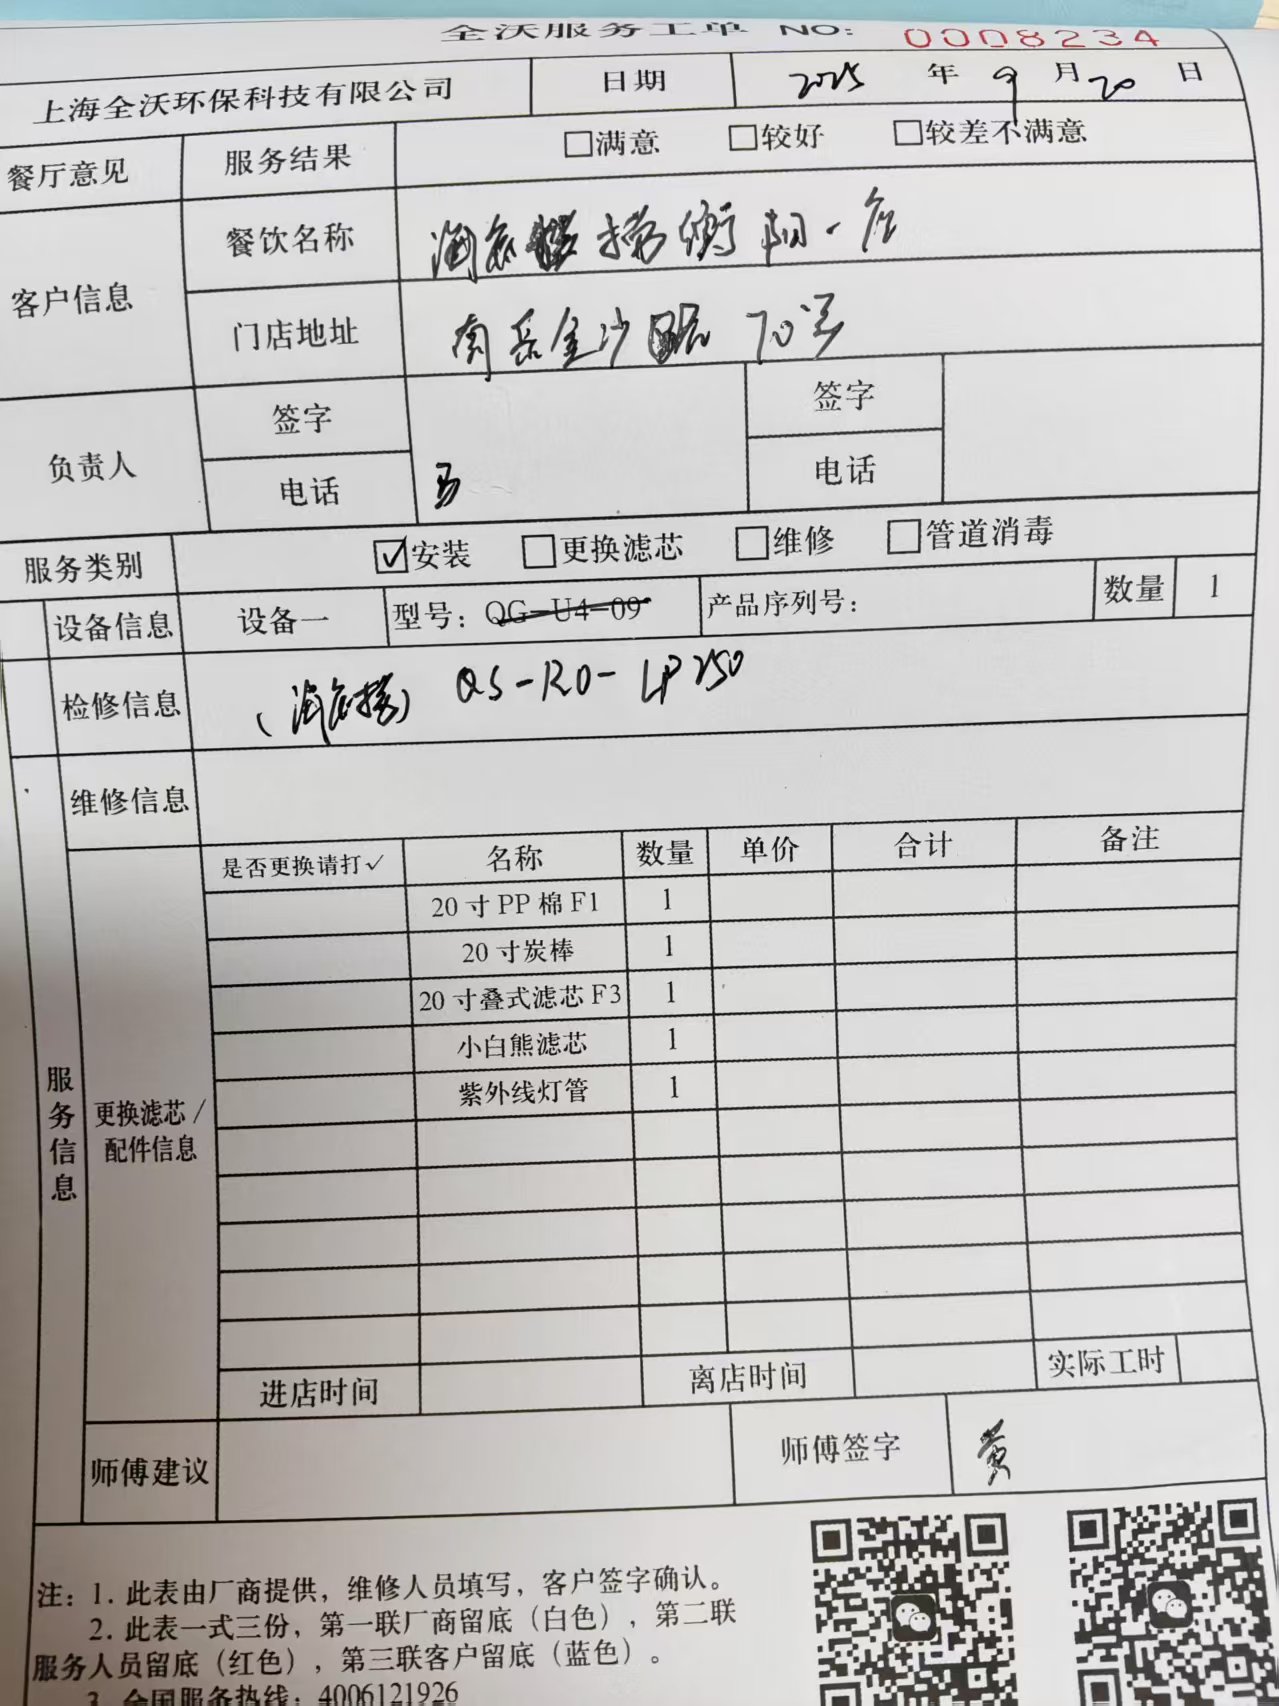 全沃服务工单 NO: 0008234
上海全沃环保科技有限公司 日期 2025 年 9 月 20 日
餐厅意见 服务结果 □满意 □较好 □较差不满意
客户信息 餐饮名称 海底 捞衡阳一店
门店地址 南岳金沙 70号
负责人 签字 签字
电话 电话
服务类别 ☑安装 □更换滤芯 □维修 □管道消毒
设备信息 设备一 型号：QG-U4-09 产品序列号： 数量 1
检修信息 (海底捞) QS-RO-LP250
维修信息
服务信息 更换滤芯/配件信息
是否更换请打✓ 名称 数量 单价 合计 备注
20寸PP棉F1 1
20寸炭棒 1
20寸叠式滤芯F3 1
小白熊滤芯 1
紫外线灯管 1
进店时间 离店时间 实际工时
师傅建议 师傅签字 黄
注：1.此表由厂商提供，维修人员填写，客户签字确认。
2.此表一式三份，第一联厂商留底（白色），第二联
服务人员留底（红色），第三联客户留底（蓝色）。
3.全国服务热线：4006121926